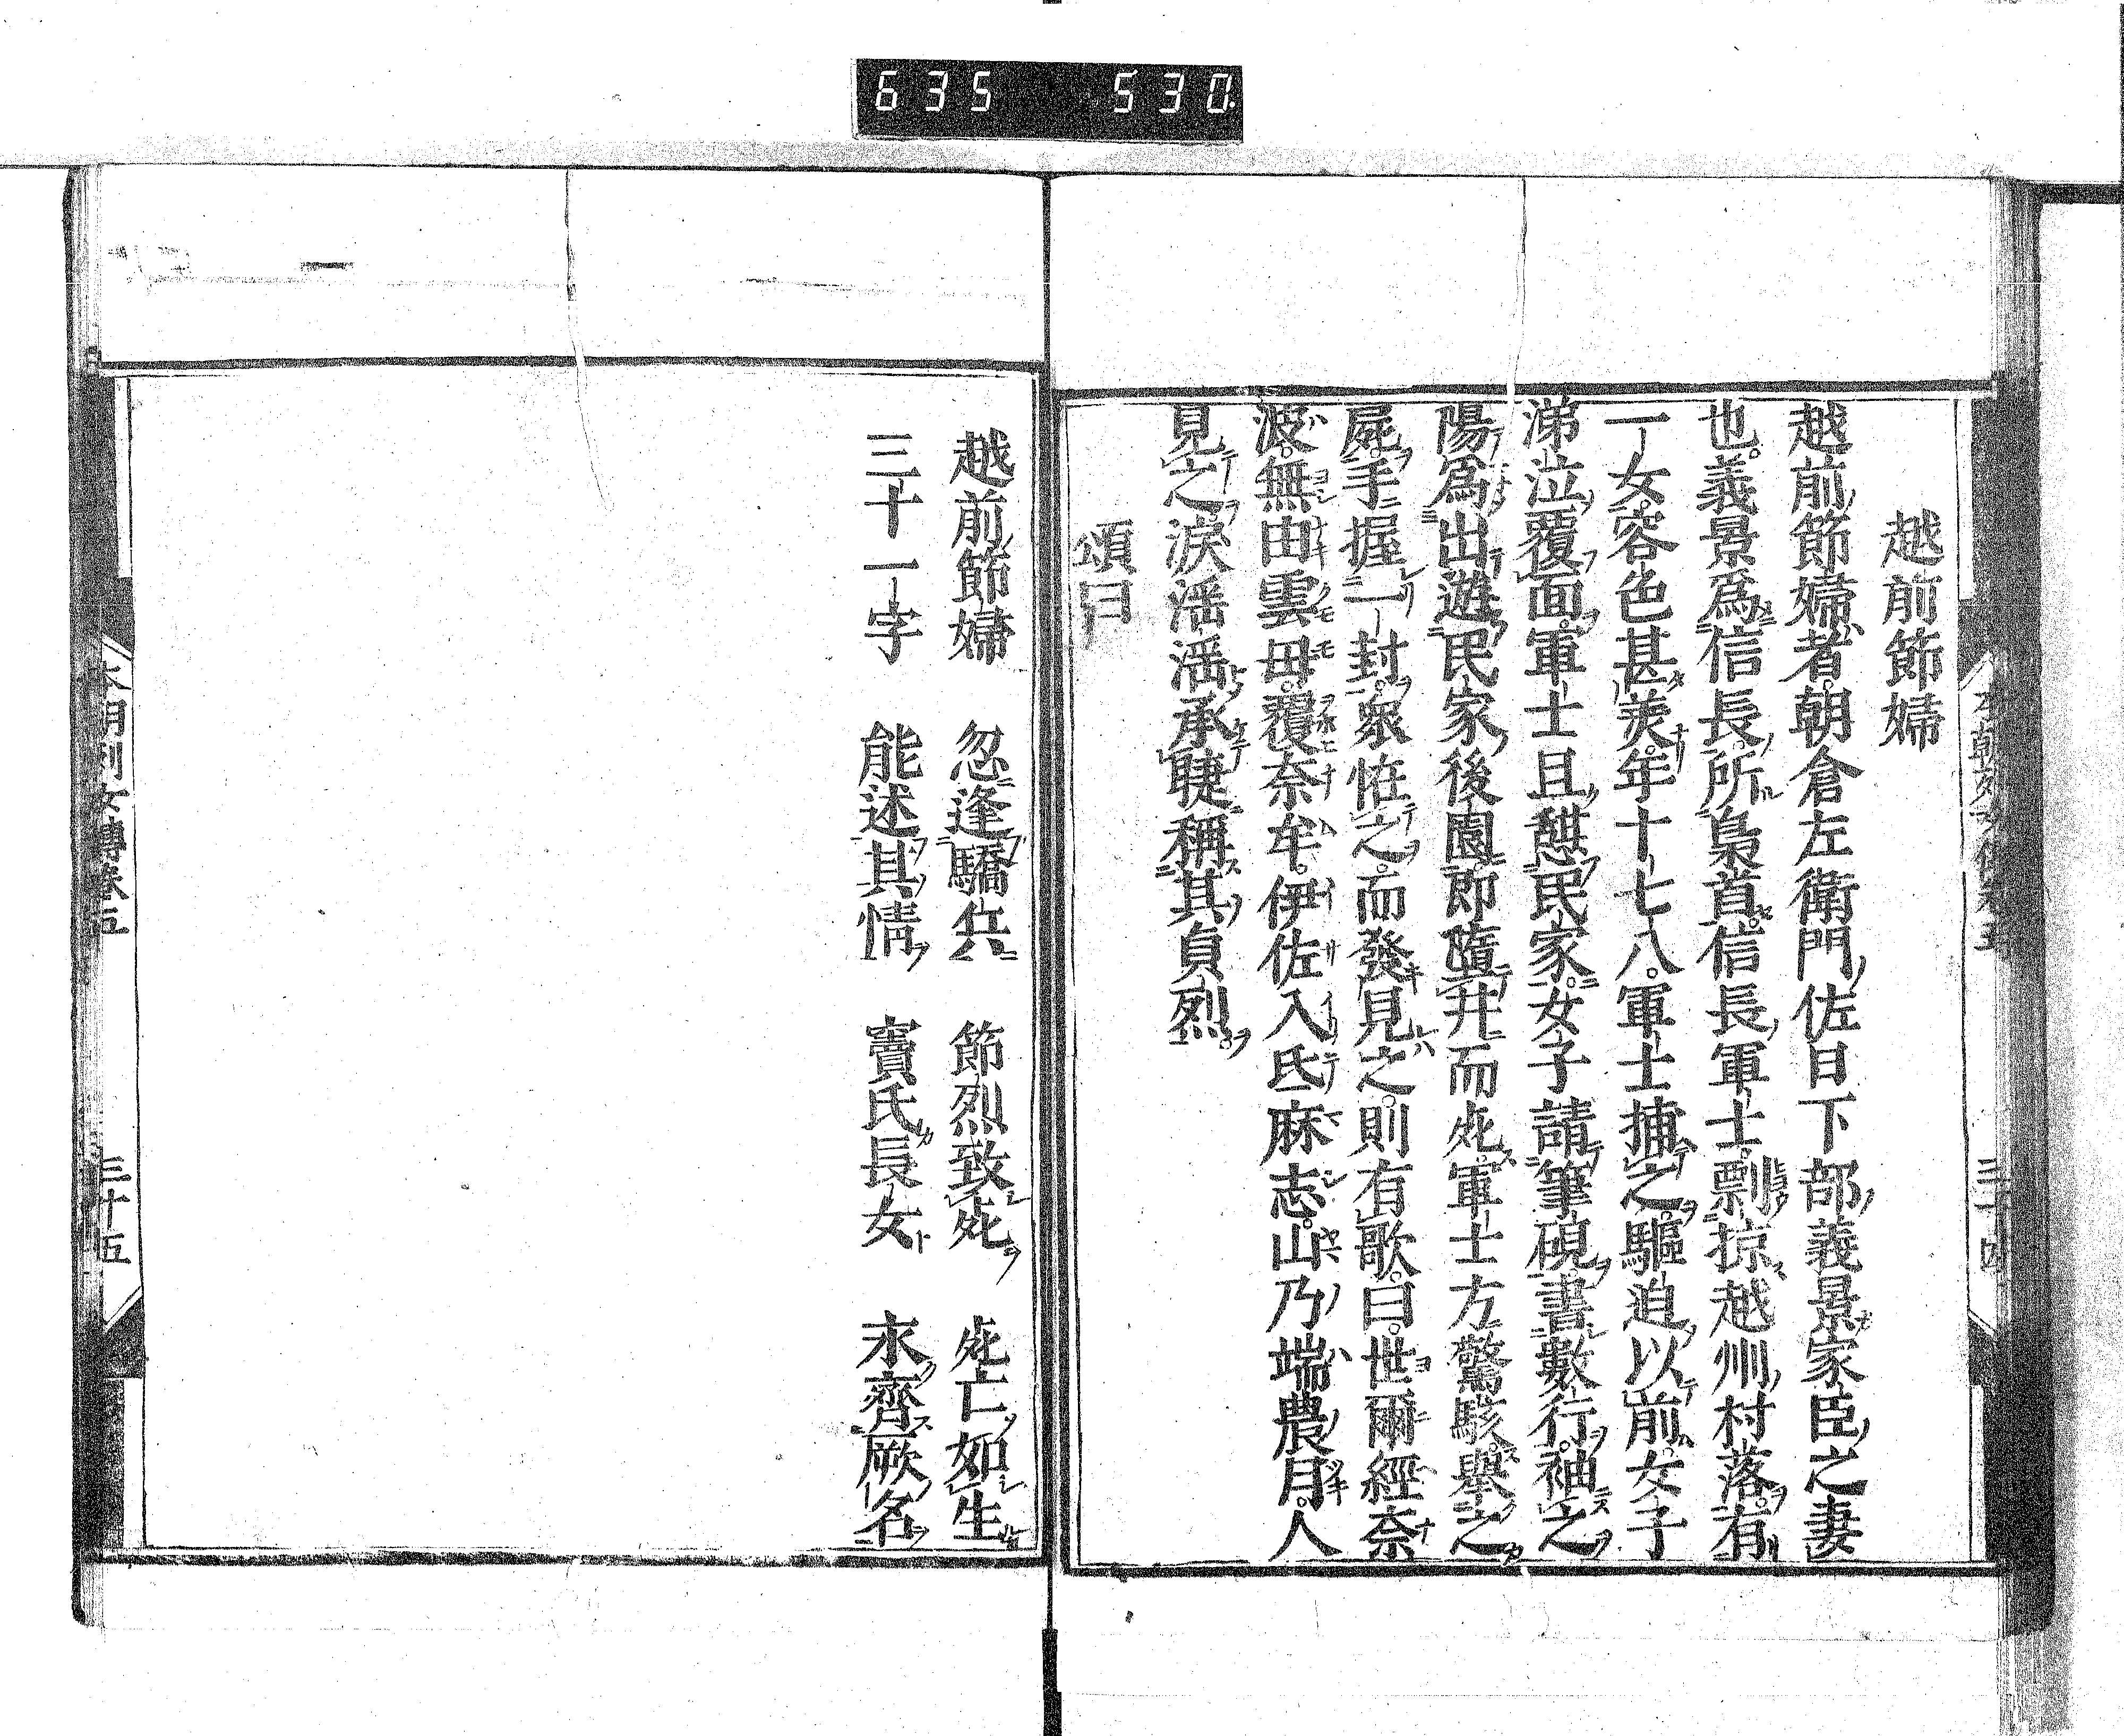 635 530.
越前節婦
越前節婦者朝倉左衛門佐日下部義景家臣之妻
也。義景爲信長所梟首。信長軍士剽掠越州村落。有
一女。容色甚美。年十七八。軍士捕之。驅迫以前。女子
涕泣覆面。軍士且憇民家。女子請筆硯。書數行。袖之
陽爲出遊民家後園。即墮井而死。軍士方驚駭。擧之
屍。手握一封。衆恠之。而發見之。則有歌。曰。世爾經奈
波。無由雲母。覆奈牟。伊佐入氐麻志。山乃端農月。人
見之。淚滛滛承睫。稱其貞烈。
頌曰
本朝列女傳卷五
三十四
越前節婦 忽逢驕兵 節烈致死 死亡如生
三十一字 能述其情 竇氏長女 永齊厥名
本朝列女傳卷五
三十五